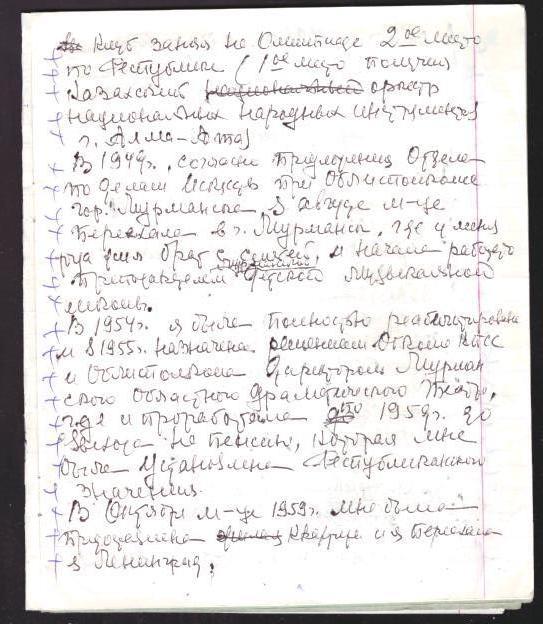 Клуб занял на Олимпиаде 2ое место
по Республике (1ое место получил
Казахский национальный оркестр
национальных народных инструментов
г. Алма-Ата)
В 1949г. согласно приглашения Отдела
по делам Искусств при Облисполкоме
гор. Мурманска в августе м-це
переехала в г. Мурманск, где у меня
жил брат с семьей, и начала работать
преподавателем Мурманской Детской музыкальной
школы.
В 1954г. я была полностью реабилитирована
и в 1955г. назначена решением Обкома КПСС
и Облисполкома Директором Мурман
ского Областного Драматического Театра,
где и проработала по 1959г. до
выхода на пенсию, которая мне
была установлена Республиканского
значения.
В Октябре м-це 1959г. мне была
предоставлена квартира и я переехала
в Ленинград.